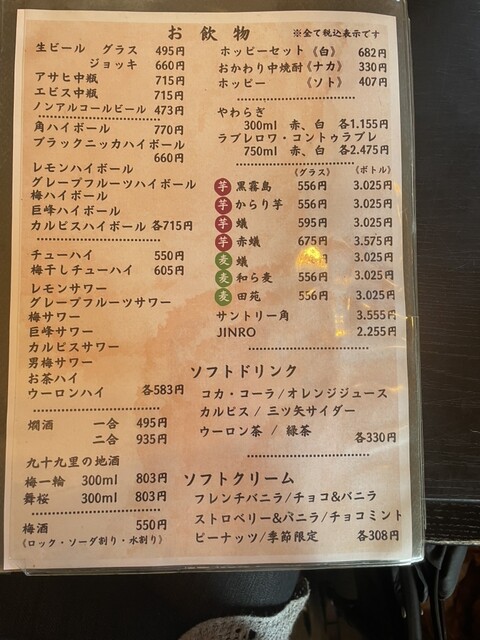 お飲物
※全て税込表示です
生ビール グラス 495円
ジョッキ 660円
アサヒ中瓶 715円
エビス中瓶 715円
ノンアルコールビール 473円
角ハイボール 770円
ブラックニッカハイボール
660円
レモンハイボール
グレープフルーツハイボール
梅ハイボール
巨峰ハイボール
カルピスハイボール 各715円
チューハイ 550円
梅干しチューハイ 605円
レモンサワー
グレープフルーツサワー
梅サワー
巨峰サワー
カルピスサワー
男梅サワー
お茶ハイ
ウーロンハイ 各583円
燗酒 一合 495円
二合 935円
九十九里の地酒
梅一輪 300ml 803円
舞桜 300ml 803円
梅酒 550円
(ロック・ソーダ割り・水割り)
ホッピーセット《白》 682円
おかわり中焼酎《ナカ》 330円
ホッピー 《ソト》 407円
やわらぎ
300ml 赤、白 各1.155円
ラブレロワ・コントゥラブレ
750ml 赤、白 各2.475円
(グラス) (ボトル)
芋 黒霧島 556円 3.025円
芋 からり芋 556円 3.025円
芋 蟻 595円 3.025円
芋 赤蟻 675円 3.575円
麦 蟻 円 3.025円
麦 和ら麦 556円 3.025円
麦 田苑 556円 3.025円
サントリー角 3.555円
JINRO 2.255円
ソフトドリンク
コカ・コーラ/オレンジジュース
カルピス / 三ツ矢サイダー
ウーロン茶 / 緑茶
各330円
ソフトクリーム
フレンチバニラ/チョコ&バニラ
ストロベリー&バニラ/チョコミント
ピーナッツ/季節限定 各308円